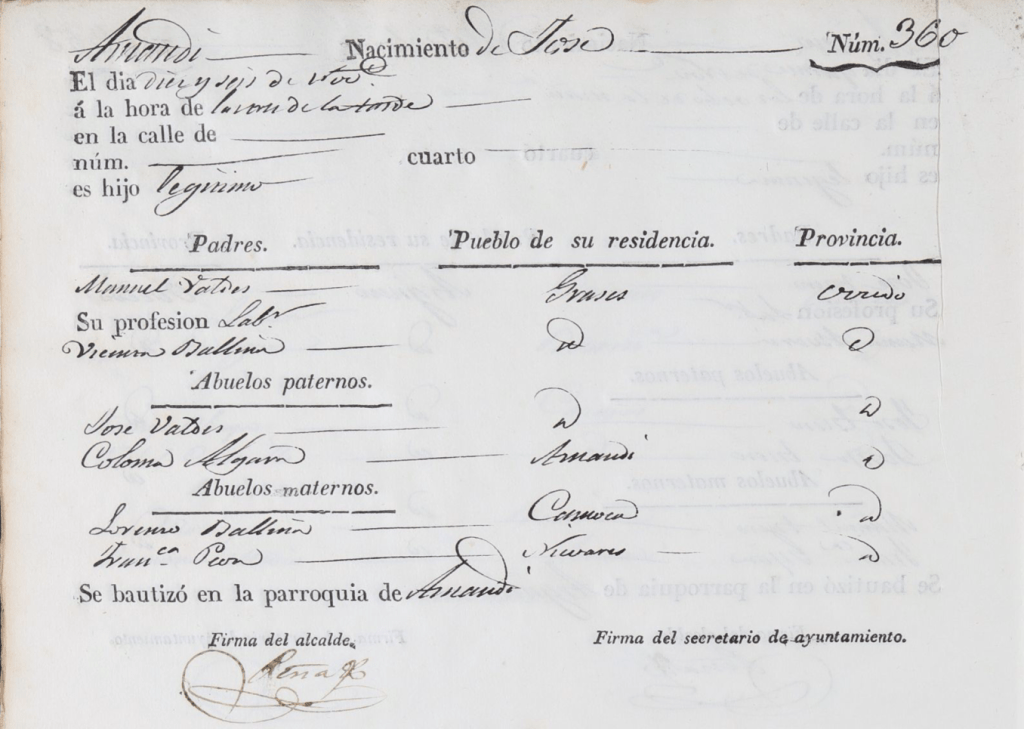 Amandi Nacimiento de Jose Núm. 360
El dia diez y seis de
á la hora de las tres de la tarde
en la calle de
núm. cuarto
es hijo legitimo
Padres. Pueblo de su residencia. Provincia.
Manuel Valdes Grases Oviedo
Su profesion Labr.
Vicenta Ballina id id
Abuelos paternos.
id
Jose Valdes id
Coloma Amandi id
Abuelos maternos.
Lorenzo Ballina Camoca id
Fran.ca Peon Nievares id
Se bautizó en la parroquia de Amandi
Firma del alcalde. Firma del secretario de ayuntamiento.
Peña